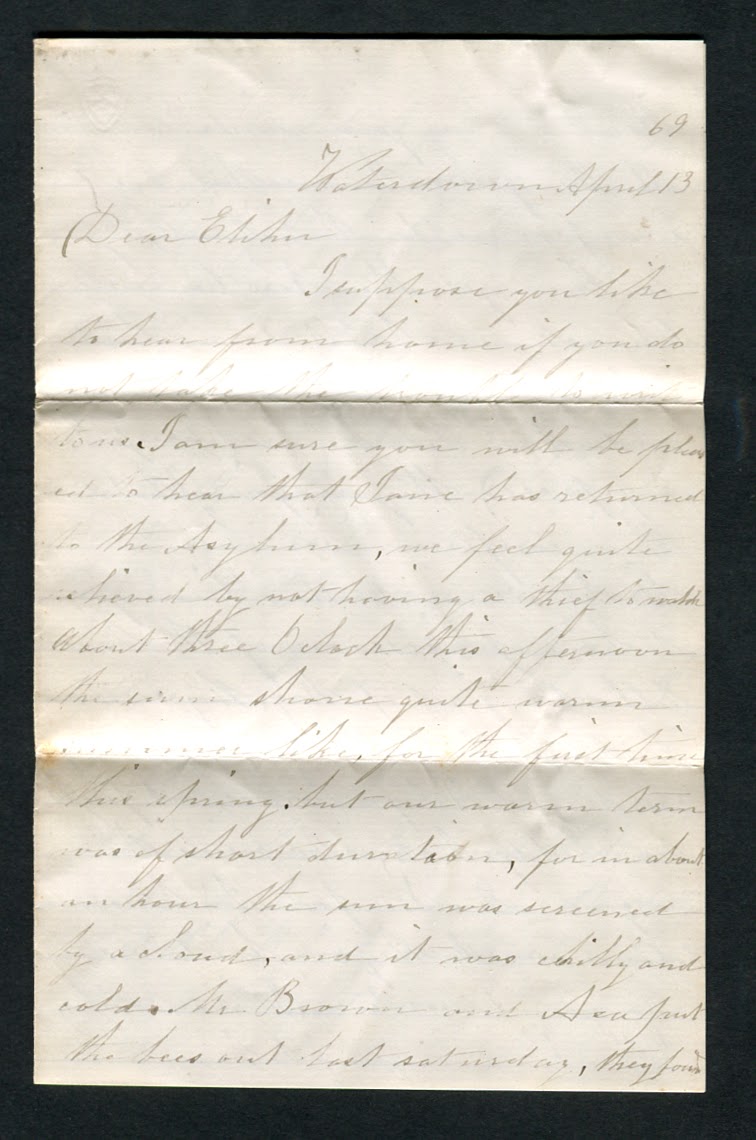 69
Waterdown April 13
Dear Elihu
I suppose you like
to hear from home if you do
not take the trouble to write
to us. I am sure you will be pleas
ed to hear that Jane has returned
to the Asylum, we feel quite
relieved by not having a thief to watch
about three O clock this afternoon
the sun shone quite warm
summer like, for the first time
this spring. but our warm term
was of short duration, for in about
an hour the sun was screened
by a cloud, and it was chilly and
cold. Mr Brown and Asa put
the bees out last saturday, they found